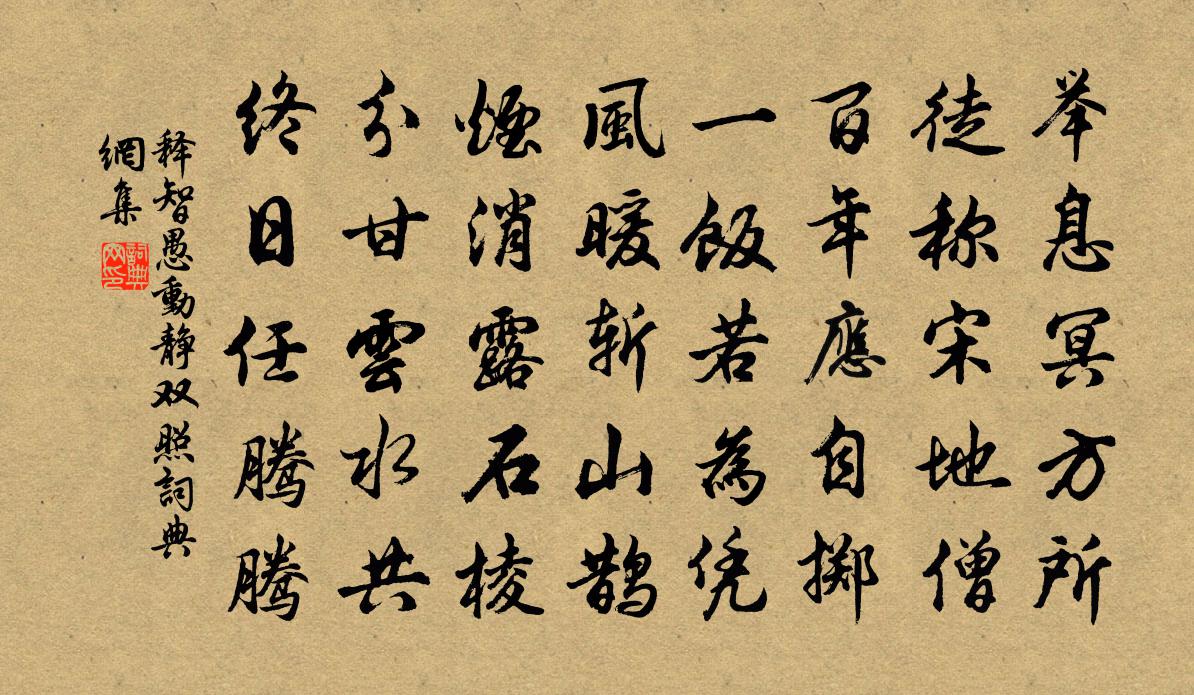 举息冥方所
徒称宋地僧
百年應自掷
一饭若為凭
風暖斩山鹊
煙消露石棱
分甘雲水共
终日任腾腾
释智愚動静双照詞典
網集
詞典
网印